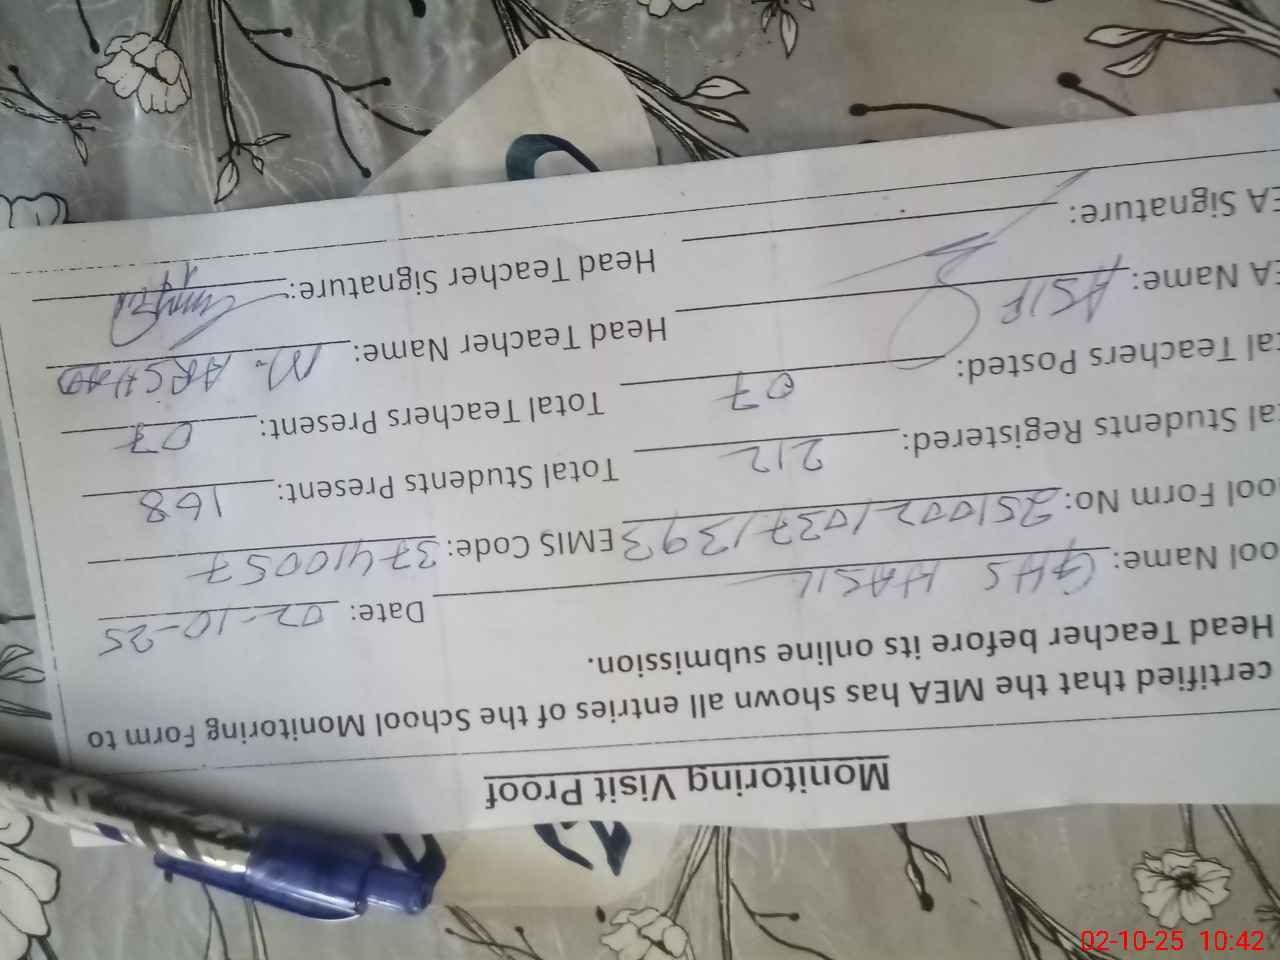 Monitoring Visit Proof
certified that the MEA has shown all entries of the School Monitoring Form to
Head Teacher before its online submission.
ool Name: GHS HASIL Date: 02-10-25
ool Form No: 25100210371393 EMIS Code: 37410057
al Students Registered: 212 Total Students Present: 168
tal Teachers Posted: 07 Total Teachers Present: 07
EA Name: ASIF Head Teacher Name: M. ARSHAD
EA Signature: Head Teacher Signature:
02-10-25 10:42